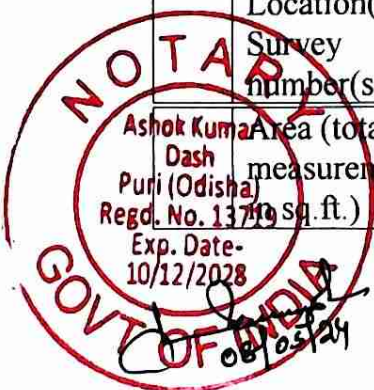 Location(
Survey
number(s
Area (tota
measuremen
in sq.ft.)
NOTARY
Ashok Kumar
Dash
Puri (Odisha)
Regd. No. 13719
Exp. Date-
10/12/2028
GOVT OF INDIA
08/05/24